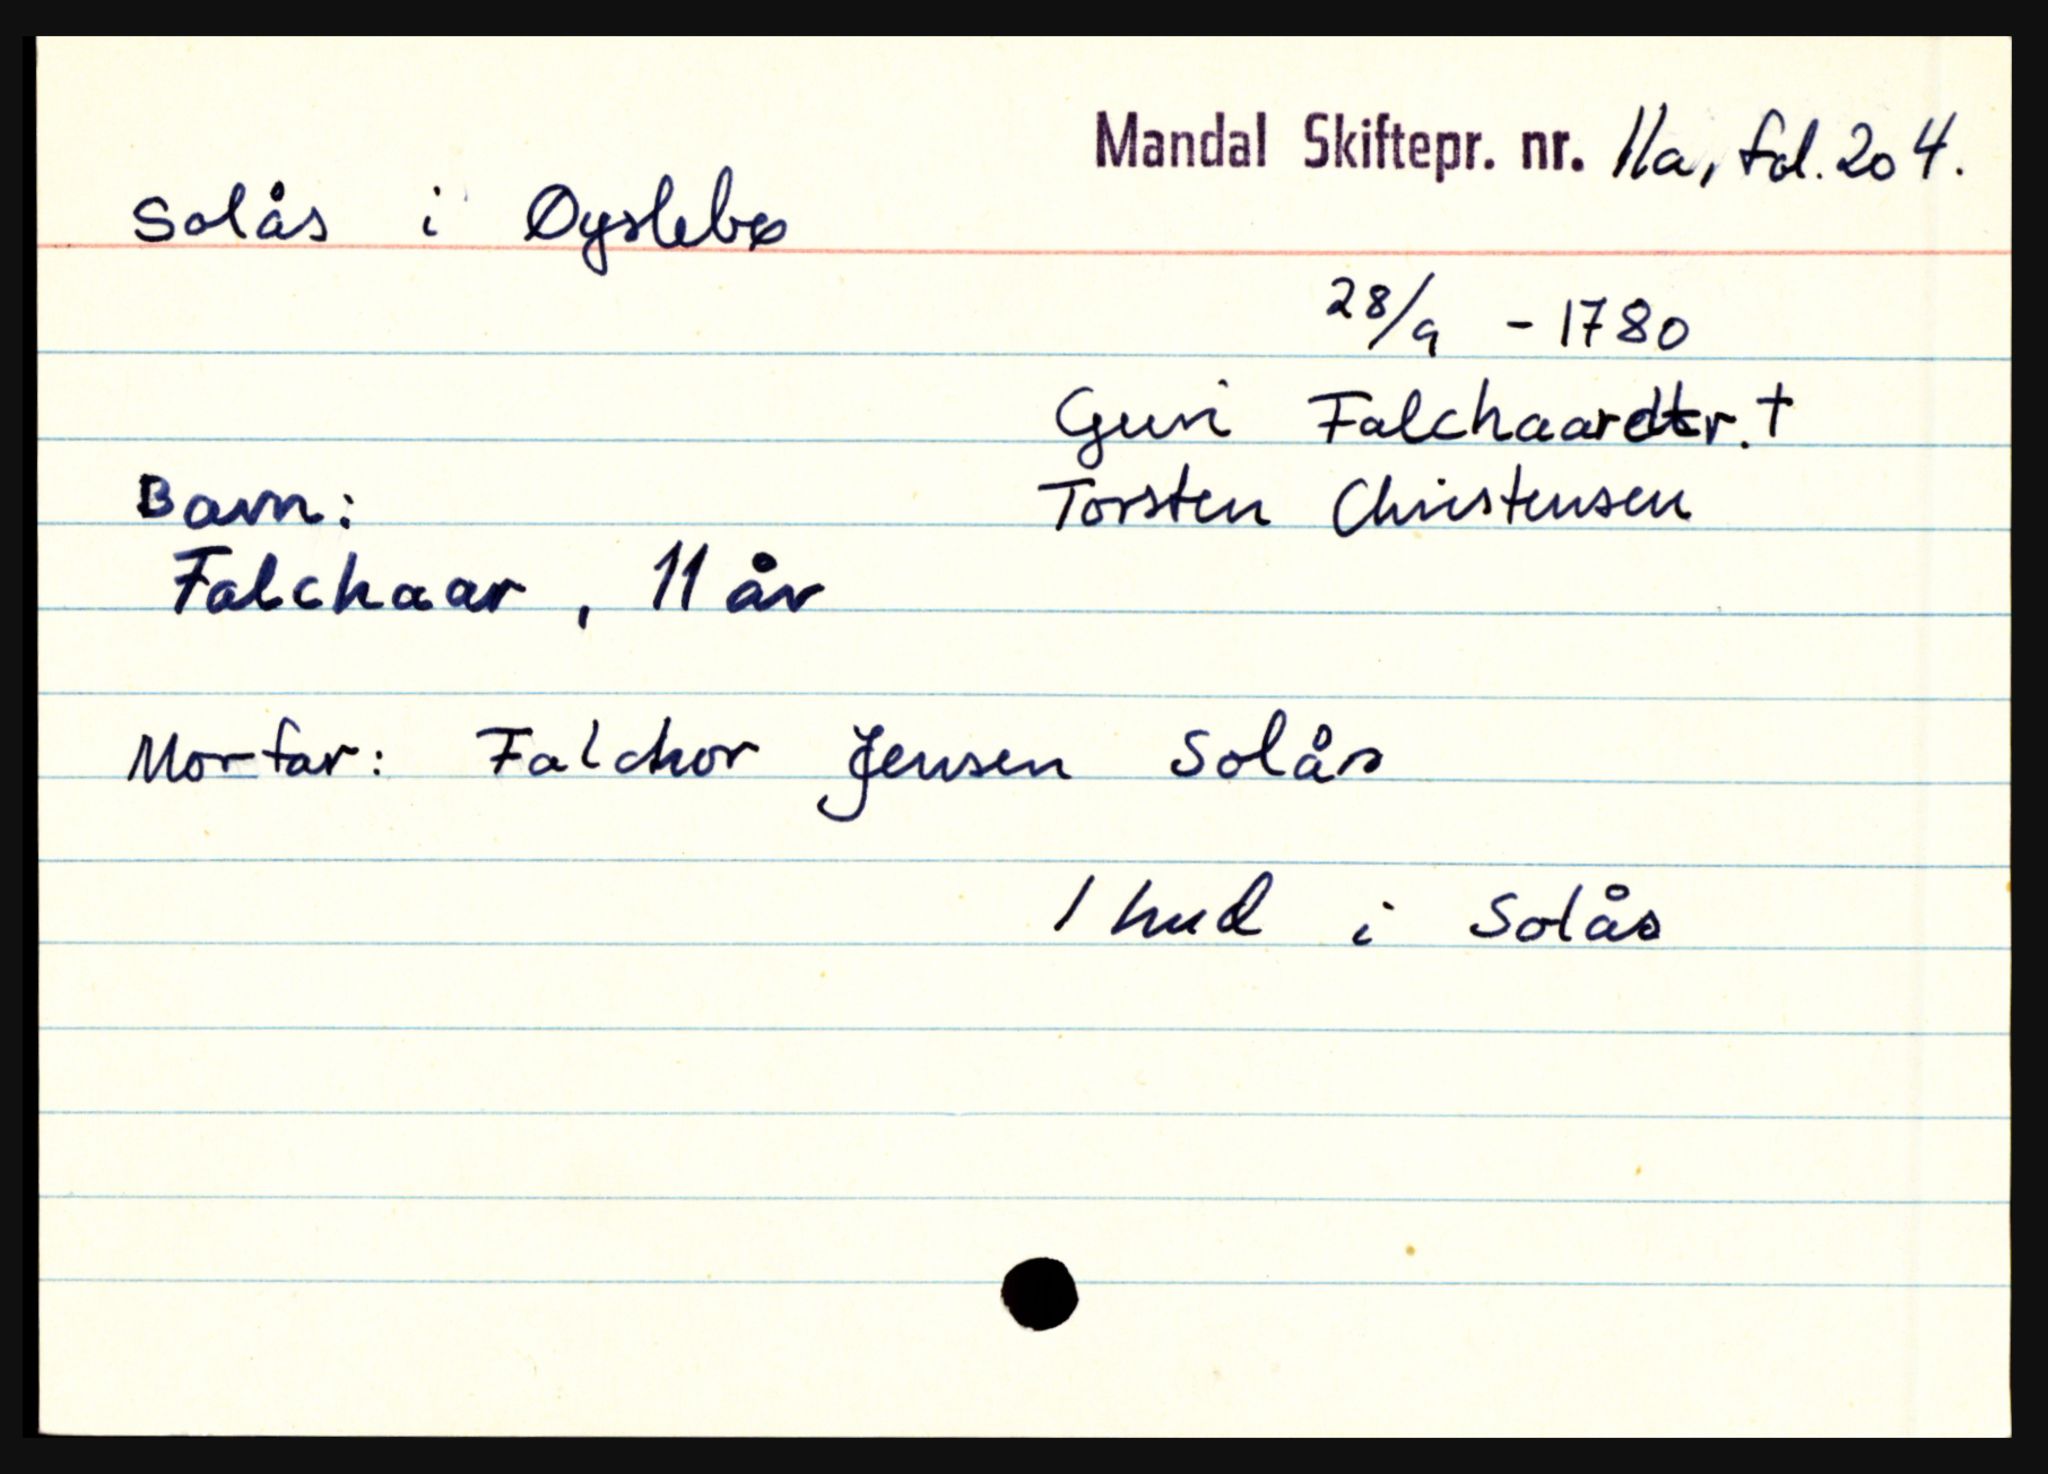 Mandal Skiftepr. nr. 11a, fol. 204.
Solås i Øyslebø
28/9 - 1780
Guri Falchaardtr. †
Torsten Christensen
Barn:
Falchaar, 11 år
Morfar: Falchor Jensen Solås
1 hud i Solås